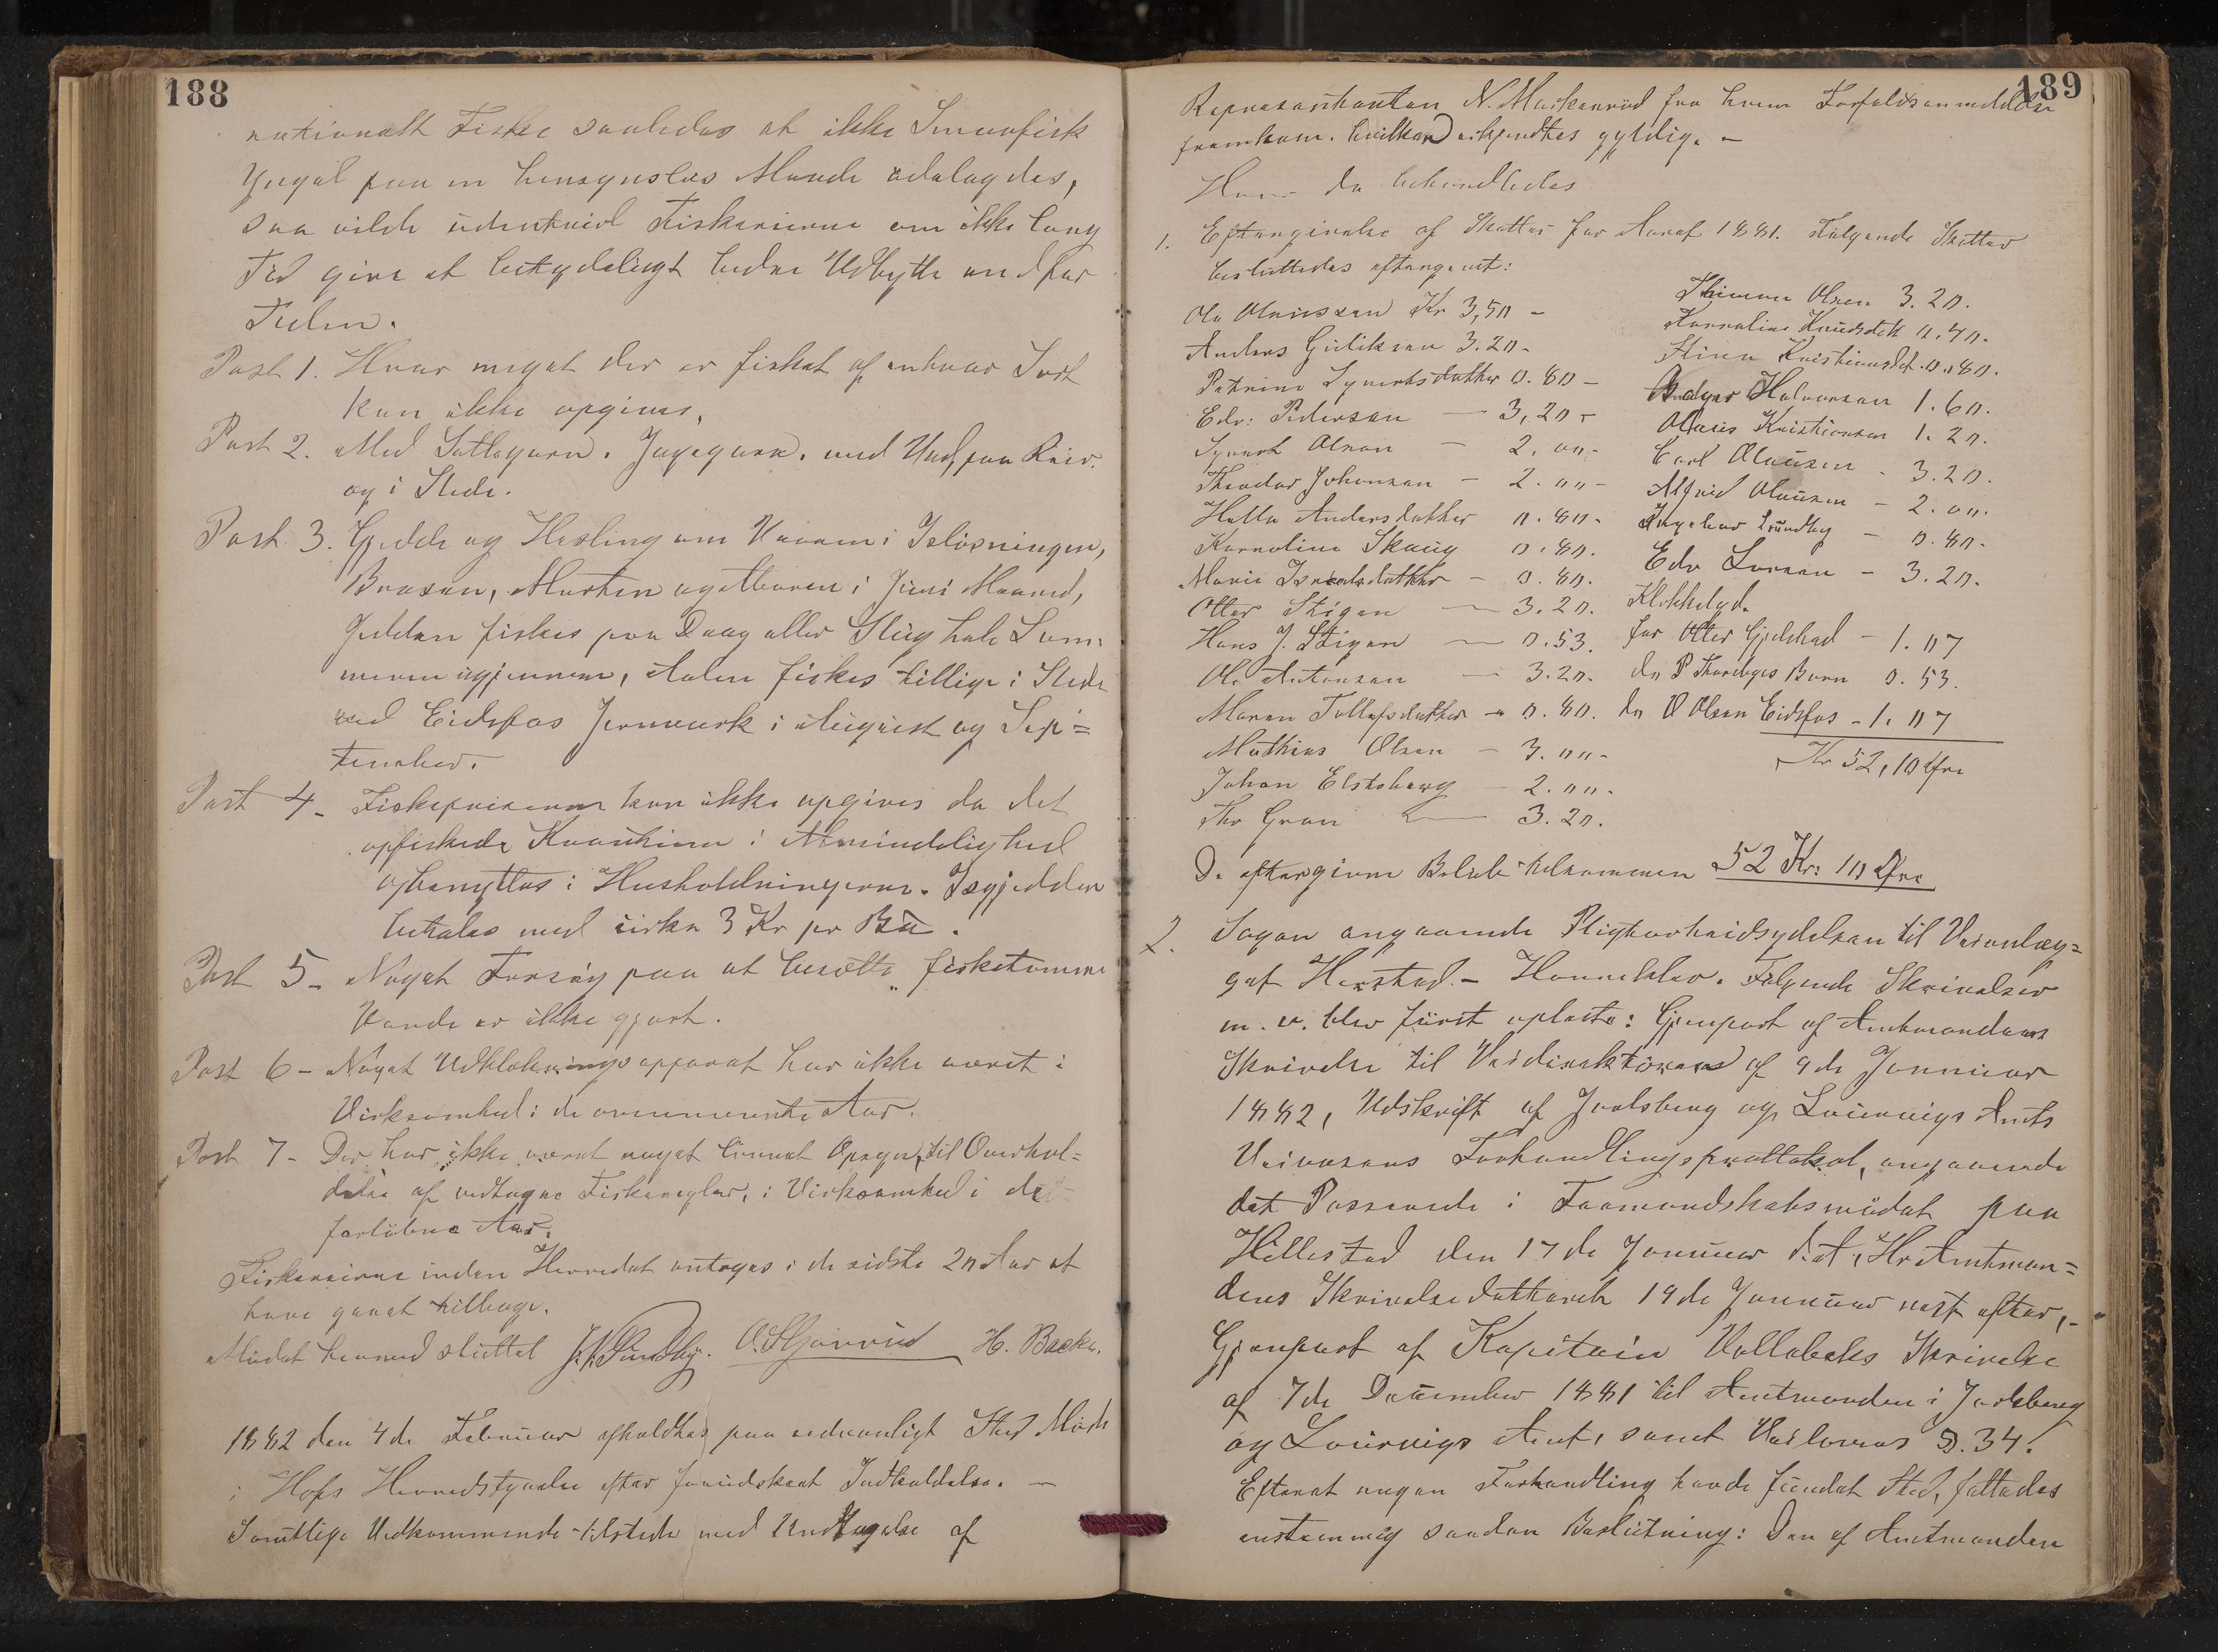 188
rationelt Fiske saaledes at ikke Smaafisk
Yngel paa en hensynsløs Maade ødelagdes,
saa vilde udentvivl Fiskerierne om ikke lang
Tid give et betydeligt bedre Udbytte end for
Tiden.
Post 1. Hvor meget der er fisket af enhver Sort
kan ikke opgives.
Post 2. Med Sættegarn, Jagegarn, med Vad, paa Krog
og i Stede.
Post 3. Gjedde og Hesling om Vaaren i Isløsningen,
Brasen, Morten og Abboren i Juni Maaned,
Gjedden fiskes paa Drag eller Slug hele Som-
meren igjennem, Aalen fiskes tillige i Stede
ved Eidsfos Jernverk i August og Sep=
tember.
Post 4 - Fiskepriserne kan ikke opgives da det
opfiskede Kvantum i Almindelighed
opbenyttes i Husholdningerne.
betales med cirka 3 Kr pr
Post 5 - Noget Forsøg paa at besætte fisketomme
Vande er ikke gjort.
Post 6 - Noget Udklækningsapparat har ikke været i
Virksomhed i de ovennævnte Aar.
Post 7 - Der har ikke været noget lønnet Opsyn, til Overhol=
delse af vedtagne Fiskeregler, i Virksomhed i det
forløbne Aar.
Fiskerierne inden Herredet antages i de sidste 20 Aar at
have gaaet tilbage.
Mødet hermed sluttet J. N. Sundby. O. Gjerrud H. Backe.
1882 den 4de Februar afholdtes paa sedvanligt Sted Møde
i Hofs Herredstyrelse efter forudskeet Indkaldelse. —
Samtlige Vedkommende tilstede med Undtagelse af
189
Repræsentanten N. Muskerud fra hvem Forfaldsanmeldelse
fremkom, hvilken erkjendtes gyldig. —
Hvor da behandledes
1. Eftergivelse af Skatter for Aaret 1881. Følgende Skatter
besluttedes eftergivet:
Ole Olaussen Kr 3,50 —
Anders Guliksen 3.20 -
Petrine Syvertsdatter 0.80 —
Edv: Pedersen — 3,20 -
Syvert Olsen — 2.00 -
Theodor Johansen — 2.00 -
Helle Andersdatter 0.80 -
Karnoline Skaug 0.80.
Marie Israelsdatter — 0.80.
Otter Stigen — 3.20.
Hans J. Stigen — 0.53.
Ole Antonsen — 3.20.
Maren Tollefsdatter — 0.80.
Mathias Olsen — 3.00 -
Johan Elstsberg — 2.00 -
Thr Gran — 3.20.
Olsen 3.20.
Karnoline Knudsdtt 0.40.
Stine Kristiansdt. 0.80.
Halvorsen 1.60.
Olaus Kristiansen 1.20.
Carl Olausen - 3.20.
Alfred Olausen — 2.00.
Ingeborg Sundby — 0.80.
Edv Larsen — 3.20.
Klokkelyd.
for Otter Gjelstad — 1.07
do P Thorbyes Barn 0.53.
do O Olsen Eidsfos — 1.07
Kr 52,10 Øre
De eftergivne Beløb tilsammen 52 Kr: 10 Øre
2. Sagen angaaende Pligtarbeidsydelsen til Veianlæg=
get Herstad - Honnekleo. Følgende Skrivelser
m. v. blev først oplæste: Gjenpart af Amtmandens
Skrivelse til Veidirektøren af 9de Januar
1882, Udskrift af Jarlsberg og Laurvigs Amts
Veivæsens Forhandlingsprottokol, angaaende
det Passerede i Formandskabsmødet paa
Hillestad den 17de Januar d. A, Hr Amtman=
dens Skrivelse datteret 19de Januar næst efter, -
Gjenpart af Kapitain Vallabeks Skrivelse
af 7de December 1881 til Amtmanden i Jarlsberg
og Laurvigs Amt, samt Veilovens §. 34.
Efterat nogen Forhandling havde fundet Sted, fattedes
enstemmig saadan Beslutning: Den af Amtmanden